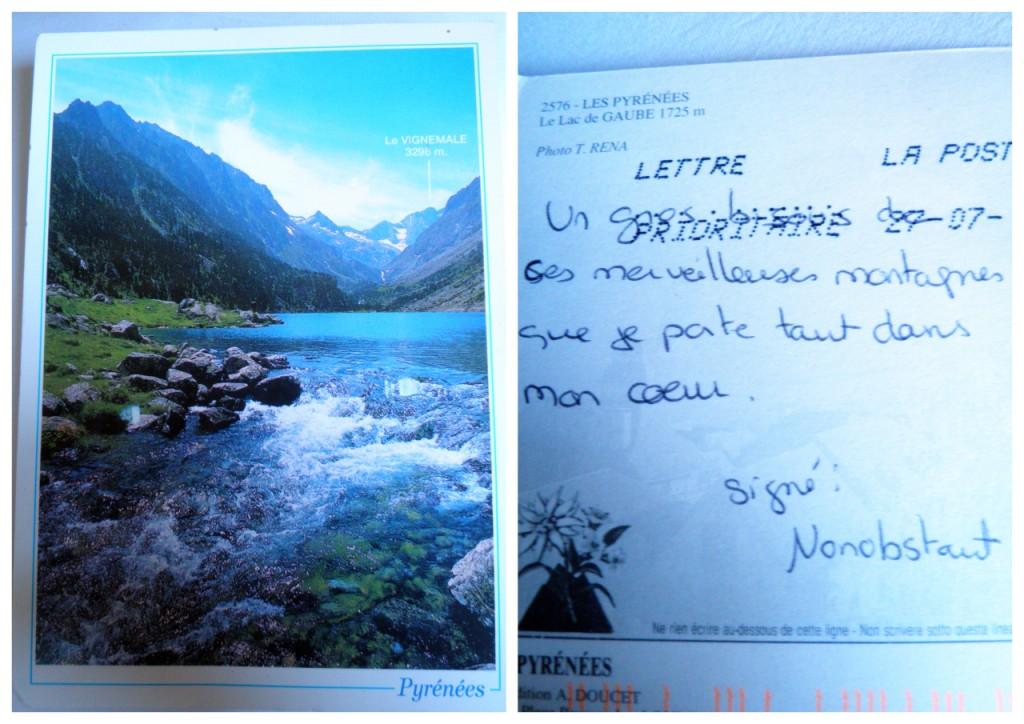 Le VIGNEMALE
3298 m.
Pyrénées
2576 - LES PYRÉNÉES
Le Lac de GAUBE 1725 m
Photo T. RENA
LETTRE LA POST
PRIORITAIRE 27-07-
Un gros bisous de
ces merveilleuses montagnes
que je porte tant dans
mon coeur.
signé:
Nonobstant
Ne rien écrire au-dessous de cette ligne - Non scrivere sotto questa linea
PYRÉNÉES
dition A. DOUCET